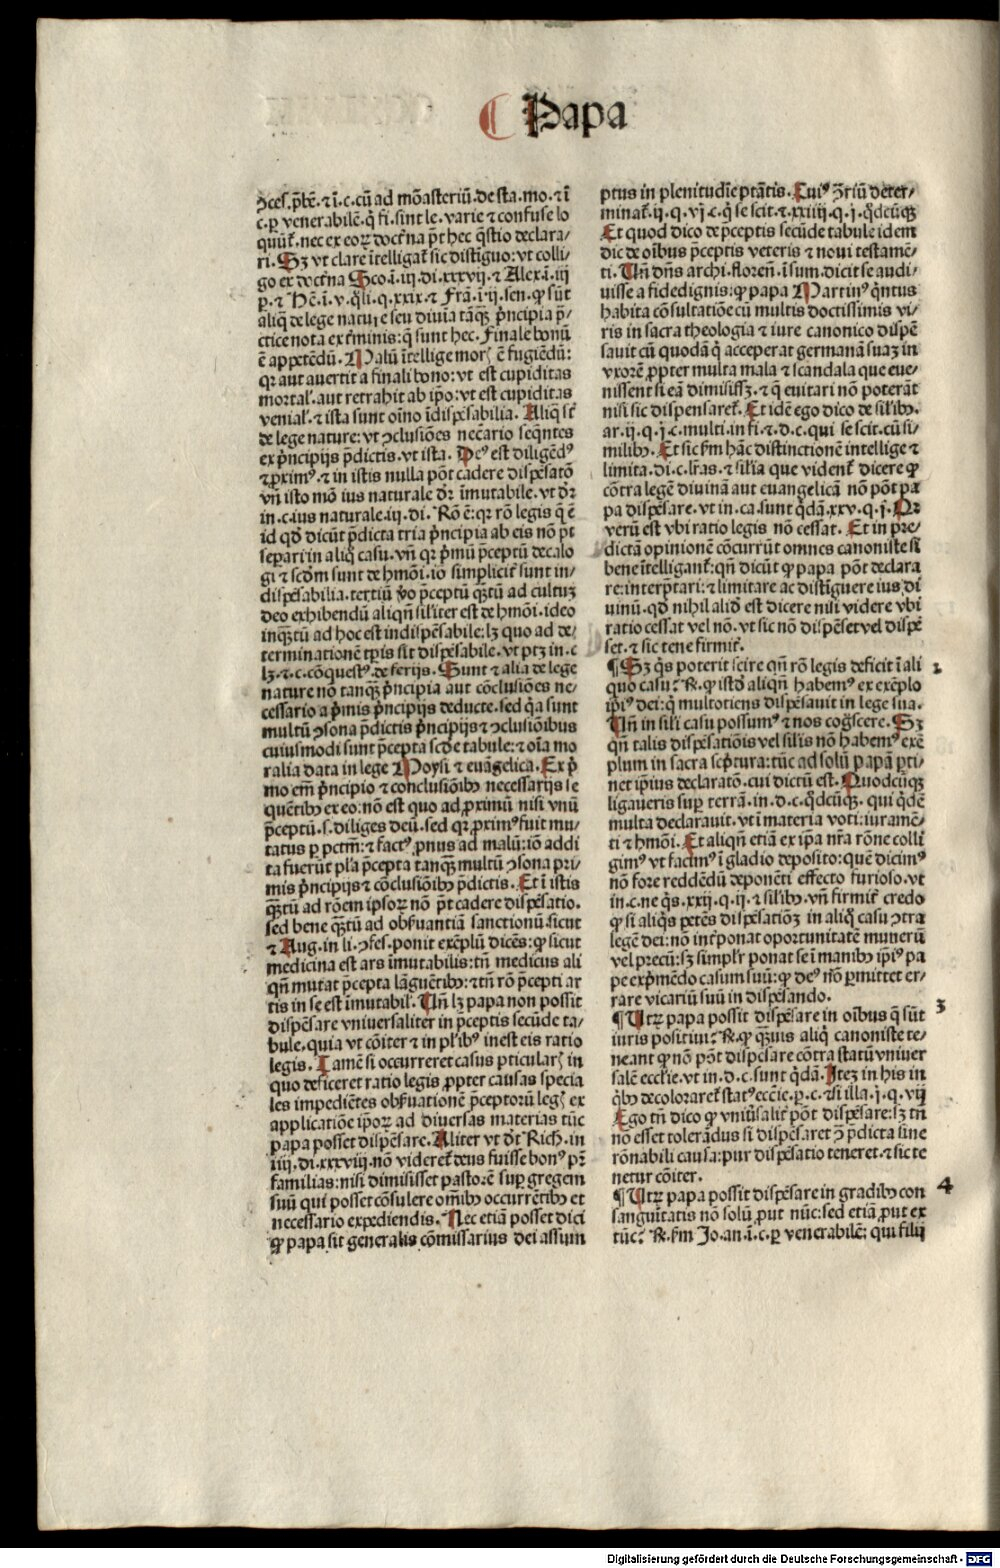 Papa
ꝯces. p̄bē. ⁊ ī. c. cū ad mōasteriū. de sta. mo. ⁊ ī
c. ꝑ venerabilē. q̇ fi. sint le. varie ⁊ confuse lo
quūt᷑. nec ex eoꝝ doctͥna p̄t hec q̄stio declara/
ri. Sꝫ vt clare ītelligat᷑ sic distīguo: vt colli/
go ex doctͥna Sco. ī. iij. di. xxxvij. ⁊ Alex. ī. iij
p. ⁊ Hē. ī. v. q̇li. q. xxix. ⁊ Frā. ī. ij. sen. ꝙ sūt
aliq̄ de lege nature seu diuīa tāꝙ̄ pͥncipia pͣ/
ctice nota ex tͥminis: q̄ sunt hec. Finale bonū
ē appetēdū. Malū ītellige mor᷑ ē fugiēdū:
qꝛ aut auertit a finali bono: vt est cupiditas
mortal᷑. aut retrahit ab ip̄o: vt est cupiditas
venial᷑. ⁊ ista sunt oīno īdispēsabilia. Aliq̄ st̄
de lege nature: vt ꝯclusiōes necͣrio seqͣntes
ex pͥncipijs p̄dictis. vt ista. Deꝰ est diligēdꝰ
⁊ ꝓximꝰ. ⁊ in istis nulla pōt cadere dispēsatō
vn̄ isto mō ius naturale dꝛ̄ īmutabile. vt dꝛ̄
in. c. ius naturale. iij. di. Rō ē: qꝛ rō legis q̄ ē
id qd̄ dicūt p̄dicta tria pͥncipia ab eis nō pt̄
separi in aliq̇ casu. vn̄ qꝛ pͥmū p̄ceptū decalo
gi ⁊ scd̄m sunt de hmōi. iō simplicit᷑ sunt in/
dispēsabilia. tertiū ṽo p̄ceptū qͣꝫtū ad cultuꝫ
deo exhibendū aliqn̄ siliter est de hmōi. ideo
inqͣꝫtū ad hoc est indispēsabile: lꝫ quo ad de/
terminationē tꝑis sit dispēsabile. vt ptꝫ in. c
lꝫ. ⁊. c. cōquestꝰ. de ferijs. Sunt ⁊ alia de lege
nature nō tanꝙ̄ pͥncipia aut cōclusiōes ne/
cessario a pͥmis pͥncipijs deducte. sed qͣ sunt
multū ꝯsona p̄dictis pͥncipijs ⁊ ꝯclusiōibus
cuiusmodi sunt p̄cepta scd̄e tabule: ⁊ oīa mo
ralia data in lege Moysi ⁊ euāgelica. Ex pͥ
mo em̄ pͥncipio ⁊ conclusiōibꝫ necessarijs se
quētibꝫ ex eo: nō est quo ad ꝓximū nisi vnū
p̄ceptū. s. diliges deū. sed qꝛ ꝓximꝰ fuit mu/
tatus ꝑ pctm̄: ⁊ factꝰ ꝓnus ad malū: iō addi
ta fuerūt pl᷑a p̄cepta tanꝙ̄ multū ꝯsona pri/
mis pͥncipijs ⁊ cōclusiōibꝫ p̄dictis. Et ī istis
qͣꝫtū ad rōem ipsoꝝ nō pt̄ cadere dispēsatio.
sed bene qͣꝫtū ad obẜuantiā sanctionū. sicut
⁊ Aug. in li. ꝯfes. ponit exēplū dicēs: ꝙ sicut
medicina est ars īmutabilis: tn̄ medicus ali
qn̄ mutat p̄cepta lāguētibꝫ: ⁊ tn̄ rō p̄cepti ar
tis in se est īmutabil᷑. Un̄ lꝫ papa non possit
dispēsare vniuersaliter in p̄ceptis secūde ta/
bule. quia vt cōiter ⁊ in pl᷑ibꝫ inest eis ratio
legis. Tamē si occurreret casus pticular᷑ in
quo deficeret ratio legis ꝓpter causas specia
les impediētes obẜuationē p̄ceptorū leg᷑ ex
applicatiōe ip̄oꝝ ad diuersas materias tūc
papa posset dispēsare. Aliter vt dīt Rich. in
iiij. di. xxxviij. nō videret᷑ deus fuisse bonꝰ pꝛ̄
familias: nisi dimisisset pastorē suꝑ gregem
suū qui posset cōsulere oībꝫ occurrētibꝫ et
necessario expediendis. Nec etiā posset dici
ꝙ papa sit generalis cōmissarius dei assum
ptus in plenitudīe ptātis. Cuiꝰ ꝯriū deter/
minat᷑. ij. q. vj. c. q̇ se scit. ⁊. xxiiij. q. j. q̇dcūqꝫ
Et quod dico de p̄ceptis secūde tabule idem
dic de oībus p̄ceptis veteris ⁊ noui testamē/
ti. Un̄ dn̄s archi. floreñ. ī sum. dicit se audi/
uisse a fidedignis: ꝙ papa Martinꝰ qͥntus
habita cōsultatiōe cū multis doctissimis vi/
ris in sacra theologia ⁊ iure canonico dispē
sauit cū quodā q̇ acceperat germanā suaꝫ in
vxorē ꝓpter multa mala ⁊ scandala que eue/
nissent si eā dimisissꝫ. ⁊ q̄ euitari nō poterāt
nisi sic dispensaret᷑. Et idē ego dico de silibꝫ.
ar. ij. q. j. c. multi. in fi. ⁊. d. c. qui se scit. cū si/
milibꝫ. Et sic ẜm hāc distinctionē intellige ⁊
limita. di. c. lr̄as. ⁊ silīa que vident᷑ dicere ꝙ
cōtra legē diuinā aut euangelicā nō pōt pa
pa dispēsare. vt in. ca. sunt q̇dā. xxv. q. j. Qꝛ
verū est vbi ratio legis nō cessat. Et in pre/
dictā opinionē cōcurrūt omnes canoniste si
bene ītelligant᷑: qn̄ dicūt ꝙ papa pōt declara
re: interp̄tari: ⁊ limitare ac distīguere ius di
uinū. qd̄ nihil alid̄ est dicere nisi videre vbi
ratio cessat vel nō. vt sic nō dispēset vel dispē
set. ⁊ sic tene firmit᷑.
¶ Sꝫ q̇s poterit scire qn̄ rō legis deficit ī ali
quo casu? ℞. ꝙ istd̄ aliqn̄ habemꝰ ex exēplo
ip̄iꝰ dei: q̇ multotiens dispēsauit in lege sua.
Un̄ in sili casu possumꝰ ⁊ nos cogͦscere. Sꝫ
qn̄ talis dispēsatiōis vel silis nō habemꝰ exē
plum in sacra scͥptura: tūc ad solū papā ꝑti/
net ip̄ius declaratō. cui dictū est. Quodcūqꝫ
ligaueris suꝑ terrā. in. d. c. q̇dcūqꝫ. qui q̇dē
multa declarauit. vt ī materia voti: iuramē/
ti ⁊ hmōi. Et aliqn̄ etiā ex ip̄a nr̄a rōne colli
gimꝰ vt facimꝰ ī gladio deposito: quē dicimꝰ
nō fore reddēdū deponēti effecto furioso. vt
in. c. ne q̇s. xxij. q. ij. ⁊ silibꝫ. vn̄ firmit᷑ credo
ꝙ si aliq̇s petēs dispēsatiōꝫ in aliq̇ casu ꝯtra
legē dei: nō int᷑ponat oportunitatē munerū
vel precū: sꝫ simplr̄ ponat se ī manibꝫ ip̄iꝰ pa
pe expͥmēdo casum suū: ꝙ deꝰ nō ꝑmittet er/
rare vicariū suū in dispēsando.
¶ Utꝝ papa possit dispēsare in oībus q̄ sūt
iuris positiui? ℞. ꝙ qͣꝫuis aliq̇ canoniste te/
neant ꝙ nō pōt dispēsare cōtra statū vniuer
salē ecclīe. vt in. d. c. sunt q̇dā. Iteꝫ in his in
q̇bꝫ decoloraret᷑ statꝰ eccīe. ꝑ. c. ⁊ si illa. j. q. vij
Ego tn̄ dico ꝙ vniūsalit᷑ pōt dispēsare: sꝫ tn̄
nō esset tolerādus si dispēsaret ī p̄dicta sine
rōnabili causa: pur dispēsatio teneret. ⁊ sic te
netur cōiter.
¶ Utꝝ papa possit dispēsare in gradibꝫ con
sanguītatis nō solū ꝓut nūc: sed etiā ꝓut ex
tūc? ℞. ẜm Jo. an. ī. c. ꝑ venerabilē: qui filij
2
3
4
Digitalisierung gefördert durch die Deutsche Forschungsgemeinschaft - DFG